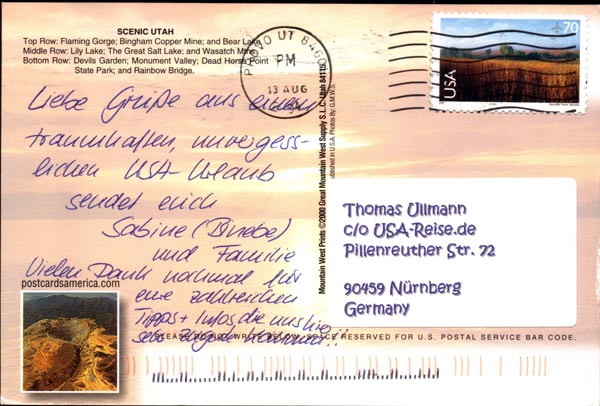 SCENIC UTAH
Top Row: Flaming Gorge; Bingham Copper Mine; and Bear Lake
Middle Row: Lily Lake; The Great Salt Lake; and Wasatch
Bottom Row: Devils Garden; Monument Valley; Dead Horse Point
State Park; and Rainbow Bridge.
PROVO UT 846
PM
13 AUG
70
USA
Liebe Grüße aus einem
traumhaften, unvergess-
lichen USA-Urlaub
sendet euch
Sabine (Biebe)
und Familie
Vielen Dank nochmal für
eine zahlreichen
Tipps + Infos, die uns hier
sehr
Mountain West Prints ©2000 Great Mountain West Supply S.L.C. Utah 84115
Published in U.S.A. Photos By: G.M.W.S.
Thomas Ullmann
c/o USA-Reise.de
Pillenreuther Str. 72
90459 Nürnberg
Germany
postcardsamerica.com
SPACE RESERVED FOR U.S. POSTAL SERVICE BAR CODE.